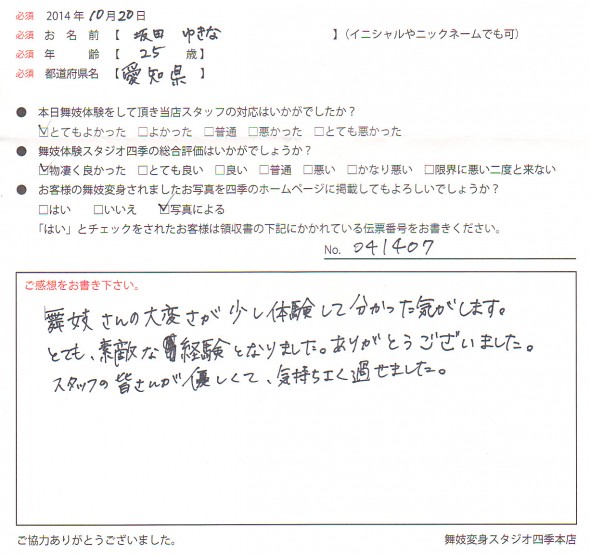 必須 2014年10月20日
必須 お名前【 坂田 ゆきな 】(イニシャルやニックネームでも可)
必須 年齢【 25 歳】
必須 都道府県名【愛知県】
● 本日舞妓体験をして頂き当店スタッフの対応はいかがでしたか?
☑とてもよかった □よかった □普通 □悪かった □とても悪かった
● 舞妓体験スタジオ四季の総合評価はいかがでしょうか?
☑物凄く良かった □とても良い □良い □普通 □悪い □かなり悪い □限界に悪い二度と来ない
● お客様の舞妓変身されましたお写真を四季のホームページに掲載してもよろしいでしょうか?
□はい □いいえ ☑写真による
「はい」とチェックをされたお客様は領収書の下記にかかれている伝票番号をお書きください。
No. 041407
ご感想をお書き下さい。
舞妓さんの大変さが少し体験して分かった気がします。
とても、素敵な経験となりました。ありがとうございました。
スタッフの皆さんが優しくて、気持ちよく過せました。
ご協力ありがとうございました。 舞妓変身スタジオ四季本店